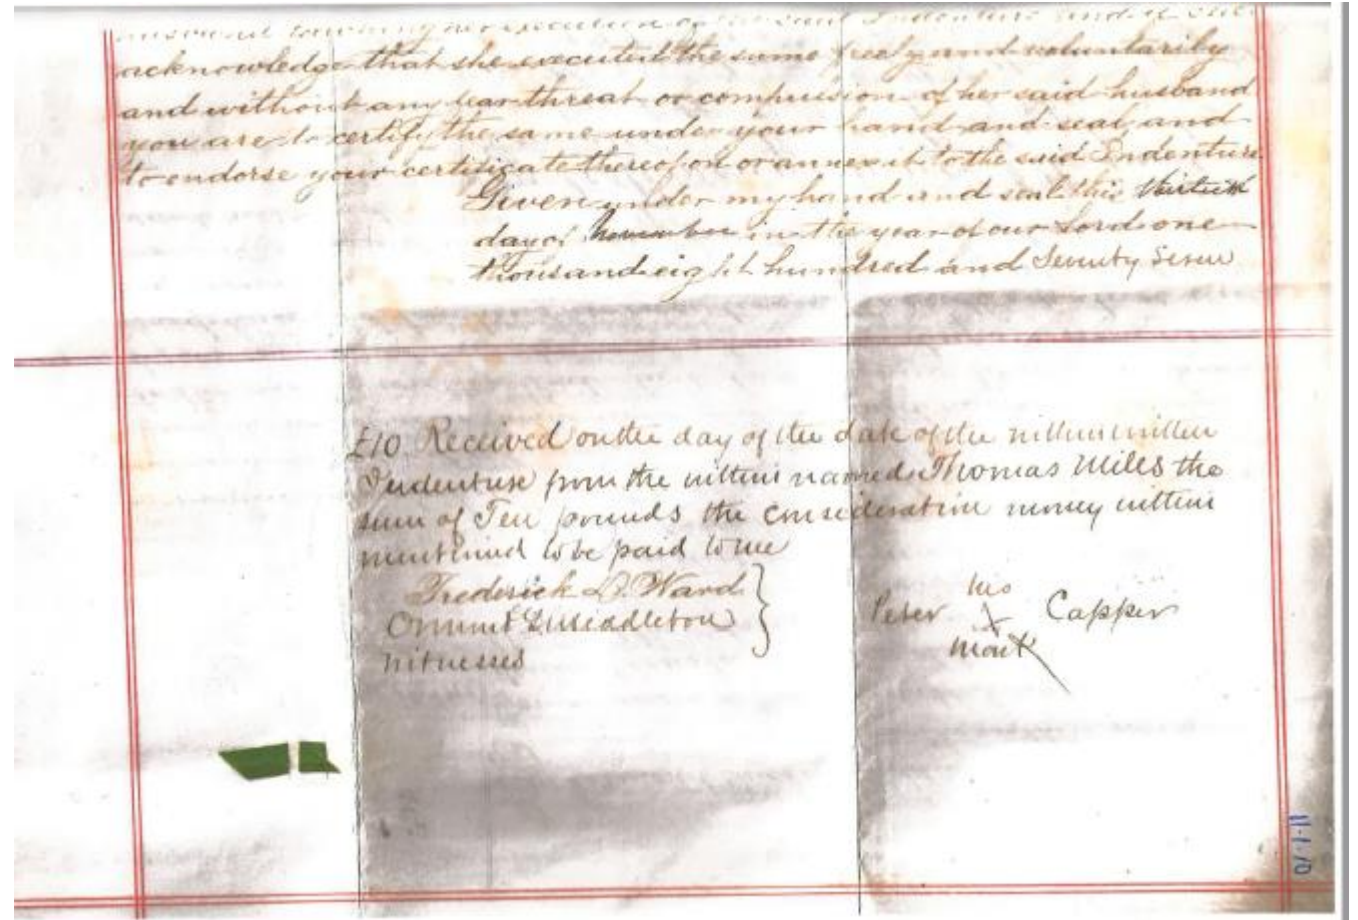 execution of the said Indenture and if she
acknowledge that she executed the same freely and voluntarily
and without any fear threat or compulsion of her said husband
you are to certify the same under your hand and seal and
to endorse your certificate thereof on or annex it to the said Indenture
Given under my hand and seal this thirtieth
day of November in the year of our Lord one
thousand eight hundred and Seventy Seven
£10. Received on the day of the date of the within written
Indenture from the within named Thomas Miles the
sum of Ten pounds the consideration money within
mentioned to be paid to me
Frederick D. Ward
Middleton
Witnesses
his
Peter X Capper
mark
11·1·10